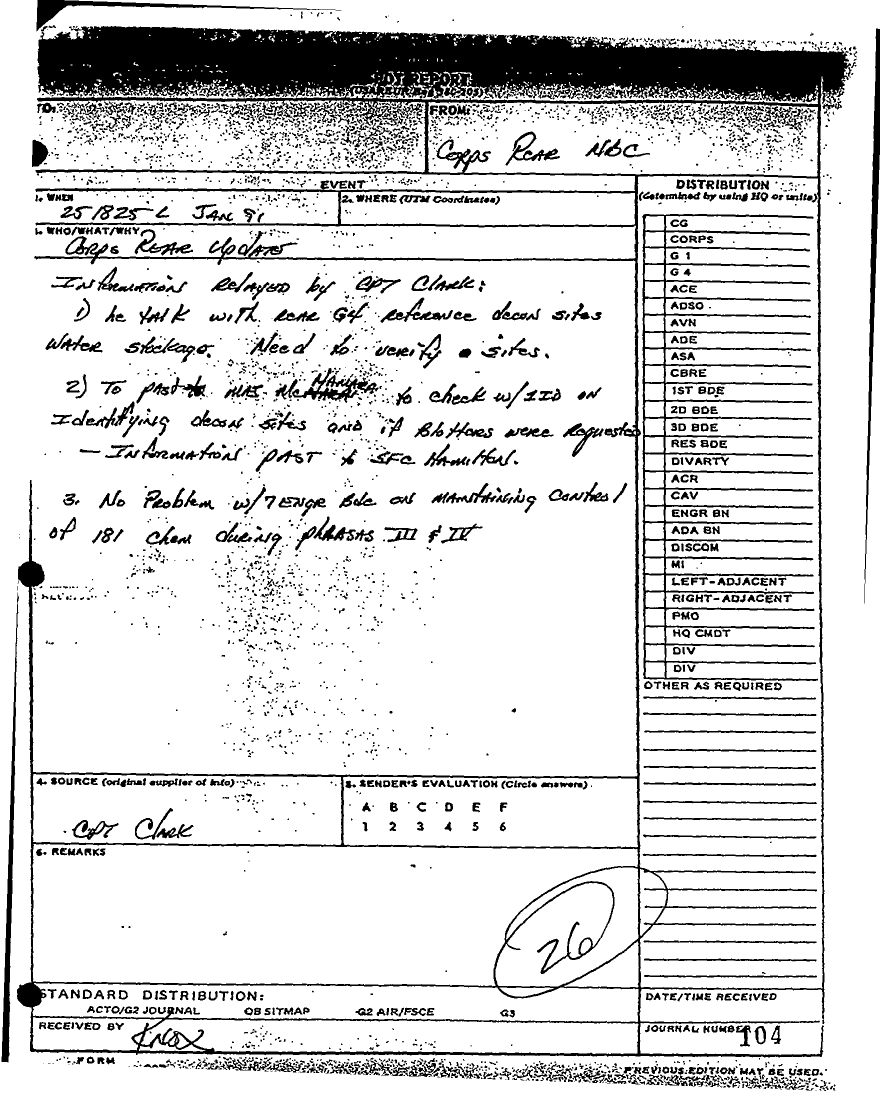 OT REPORT
TO:
FROM:
Corps Rear NBC
EVENT
1. WHEN
251825 L Jan 91
2. WHERE (UTM Coordinates)
3. WHO/WHAT/WHY
Corps Rear Update
Information relayed by CPT Clark:
1) he talk with rear G4 reference decon sites
water stockage. Need to verify sites.
2) To past to MAJ McNamara to check w/1ID on
Identifying decon sites and if Blotters were requested
— Information past to SFC Hamilton.
3. No Problem w/7 ENGR Bde on maintaining control
of 181 Chem during phrasas III & IV
DISTRIBUTION
(determined by using HQ or units)
CG
CORPS
G 1
G 4
ACE
ADSO
AVN
ADE
ASA
CBRE
1ST BDE
2D BDE
3D BDE
RES BDE
DIVARTY
ACR
CAV
ENGR BN
ADA BN
DISCOM
MI
LEFT-ADJACENT
RIGHT-ADJACENT
PMO
HQ CMDT
DIV
DIV
OTHER AS REQUIRED
4. SOURCE (original supplier of info)
CPT Clark
5. SENDER'S EVALUATION (Circle answers)
A B C D E F
1 2 3 4 5 6
6. REMARKS
26
STANDARD DISTRIBUTION:
ACTO/G2 JOURNAL OB SITMAP G2 AIR/FSCE G3
RECEIVED BY Knox
DATE/TIME RECEIVED
JOURNAL NUMBER 104
FORM
PREVIOUS EDITION MAY BE USED.